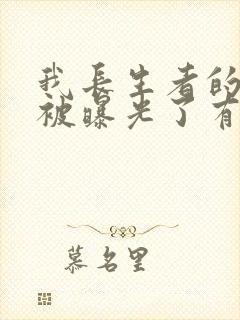 我长生者的
被曝光了有
慕名里